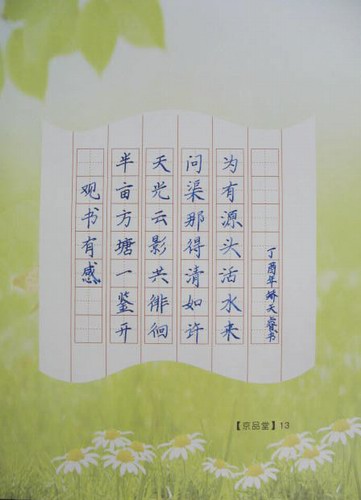 观书有感
半亩方塘一鉴开
天光云影共徘徊
问渠那得清如许
为有源头活水来
丁酉年天睿书
【京品堂】13